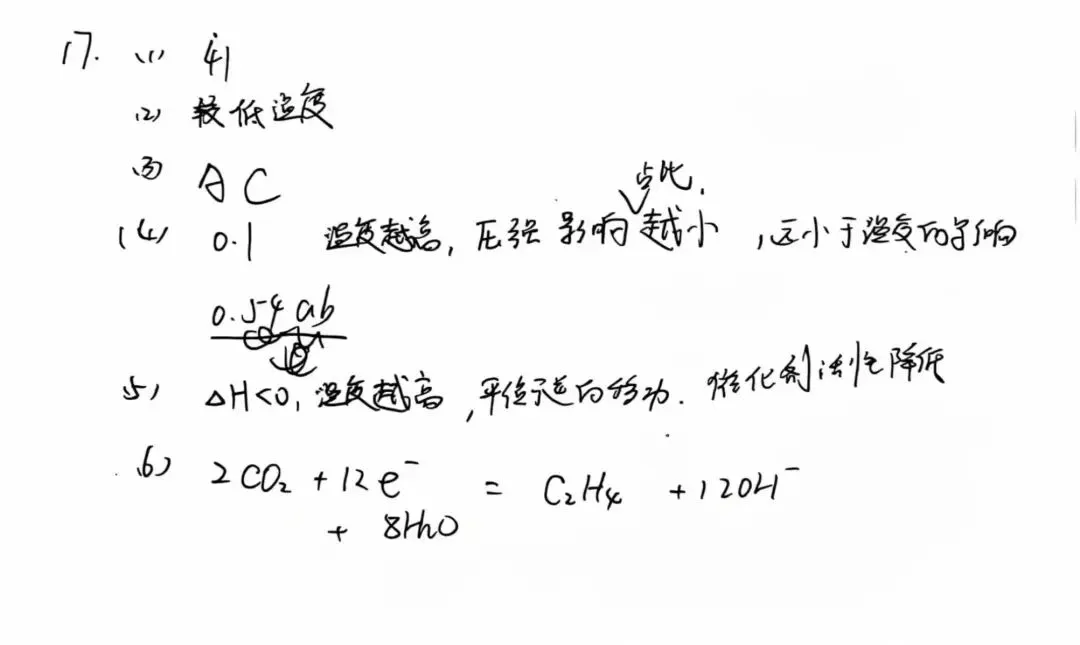 17. (1) 41
(2) 较低温度
(3) A C
占比.
(4) 0.1 温度越高, 压强影响越小, 远小于温度的影响
0.54ab
(5) △H<0, 温度越高, 平衡逆向移动. 催化剂活性降低
(6) 2CO₂ + 12e⁻ = C₂H₄ + 12OH⁻
+ 8H₂O